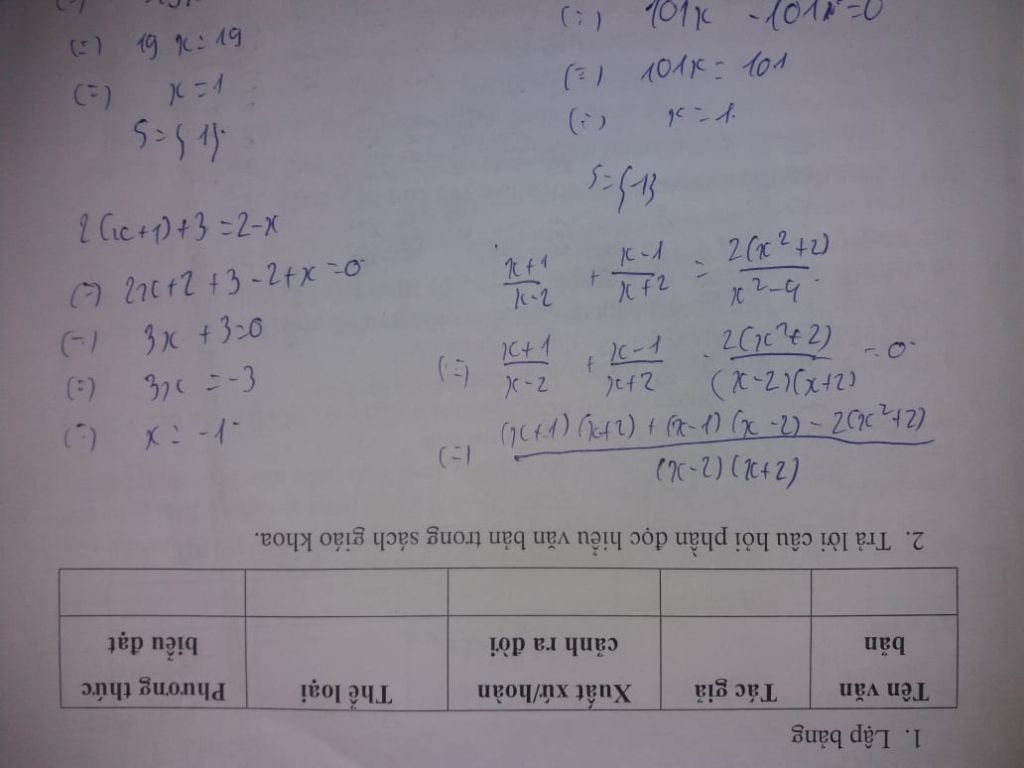 (=) 19x = 19
(=) x = 1
S = {1}
2(x+1)+3 = 2-x
(=) 2x+2+3-2+x = 0
(=) 3x+3 = 0
(=) 3x = -3
(=) x = -1
(=) 101x - 101 = 0
(=) 101x = 101
(=) x = 1
S = {1}
x+1/x-2 + x-1/x+2 = 2(x²+2)/x²-4
(=) x+1/x-2 + x-1/x+2 - 2(x²+2)/(x-2)(x+2) = 0
(=) (x+1)(x+2)+(x-1)(x-2)-2(x²+2)/(x-2)(x+2)
1. Lập bảng
Tên văn bản | Tác giả | Xuất xứ/hoàn cảnh ra đời | Thể loại | Phương thức biểu đạt
2. Trả lời câu hỏi phần đọc hiểu văn bản trong sách giáo khoa.